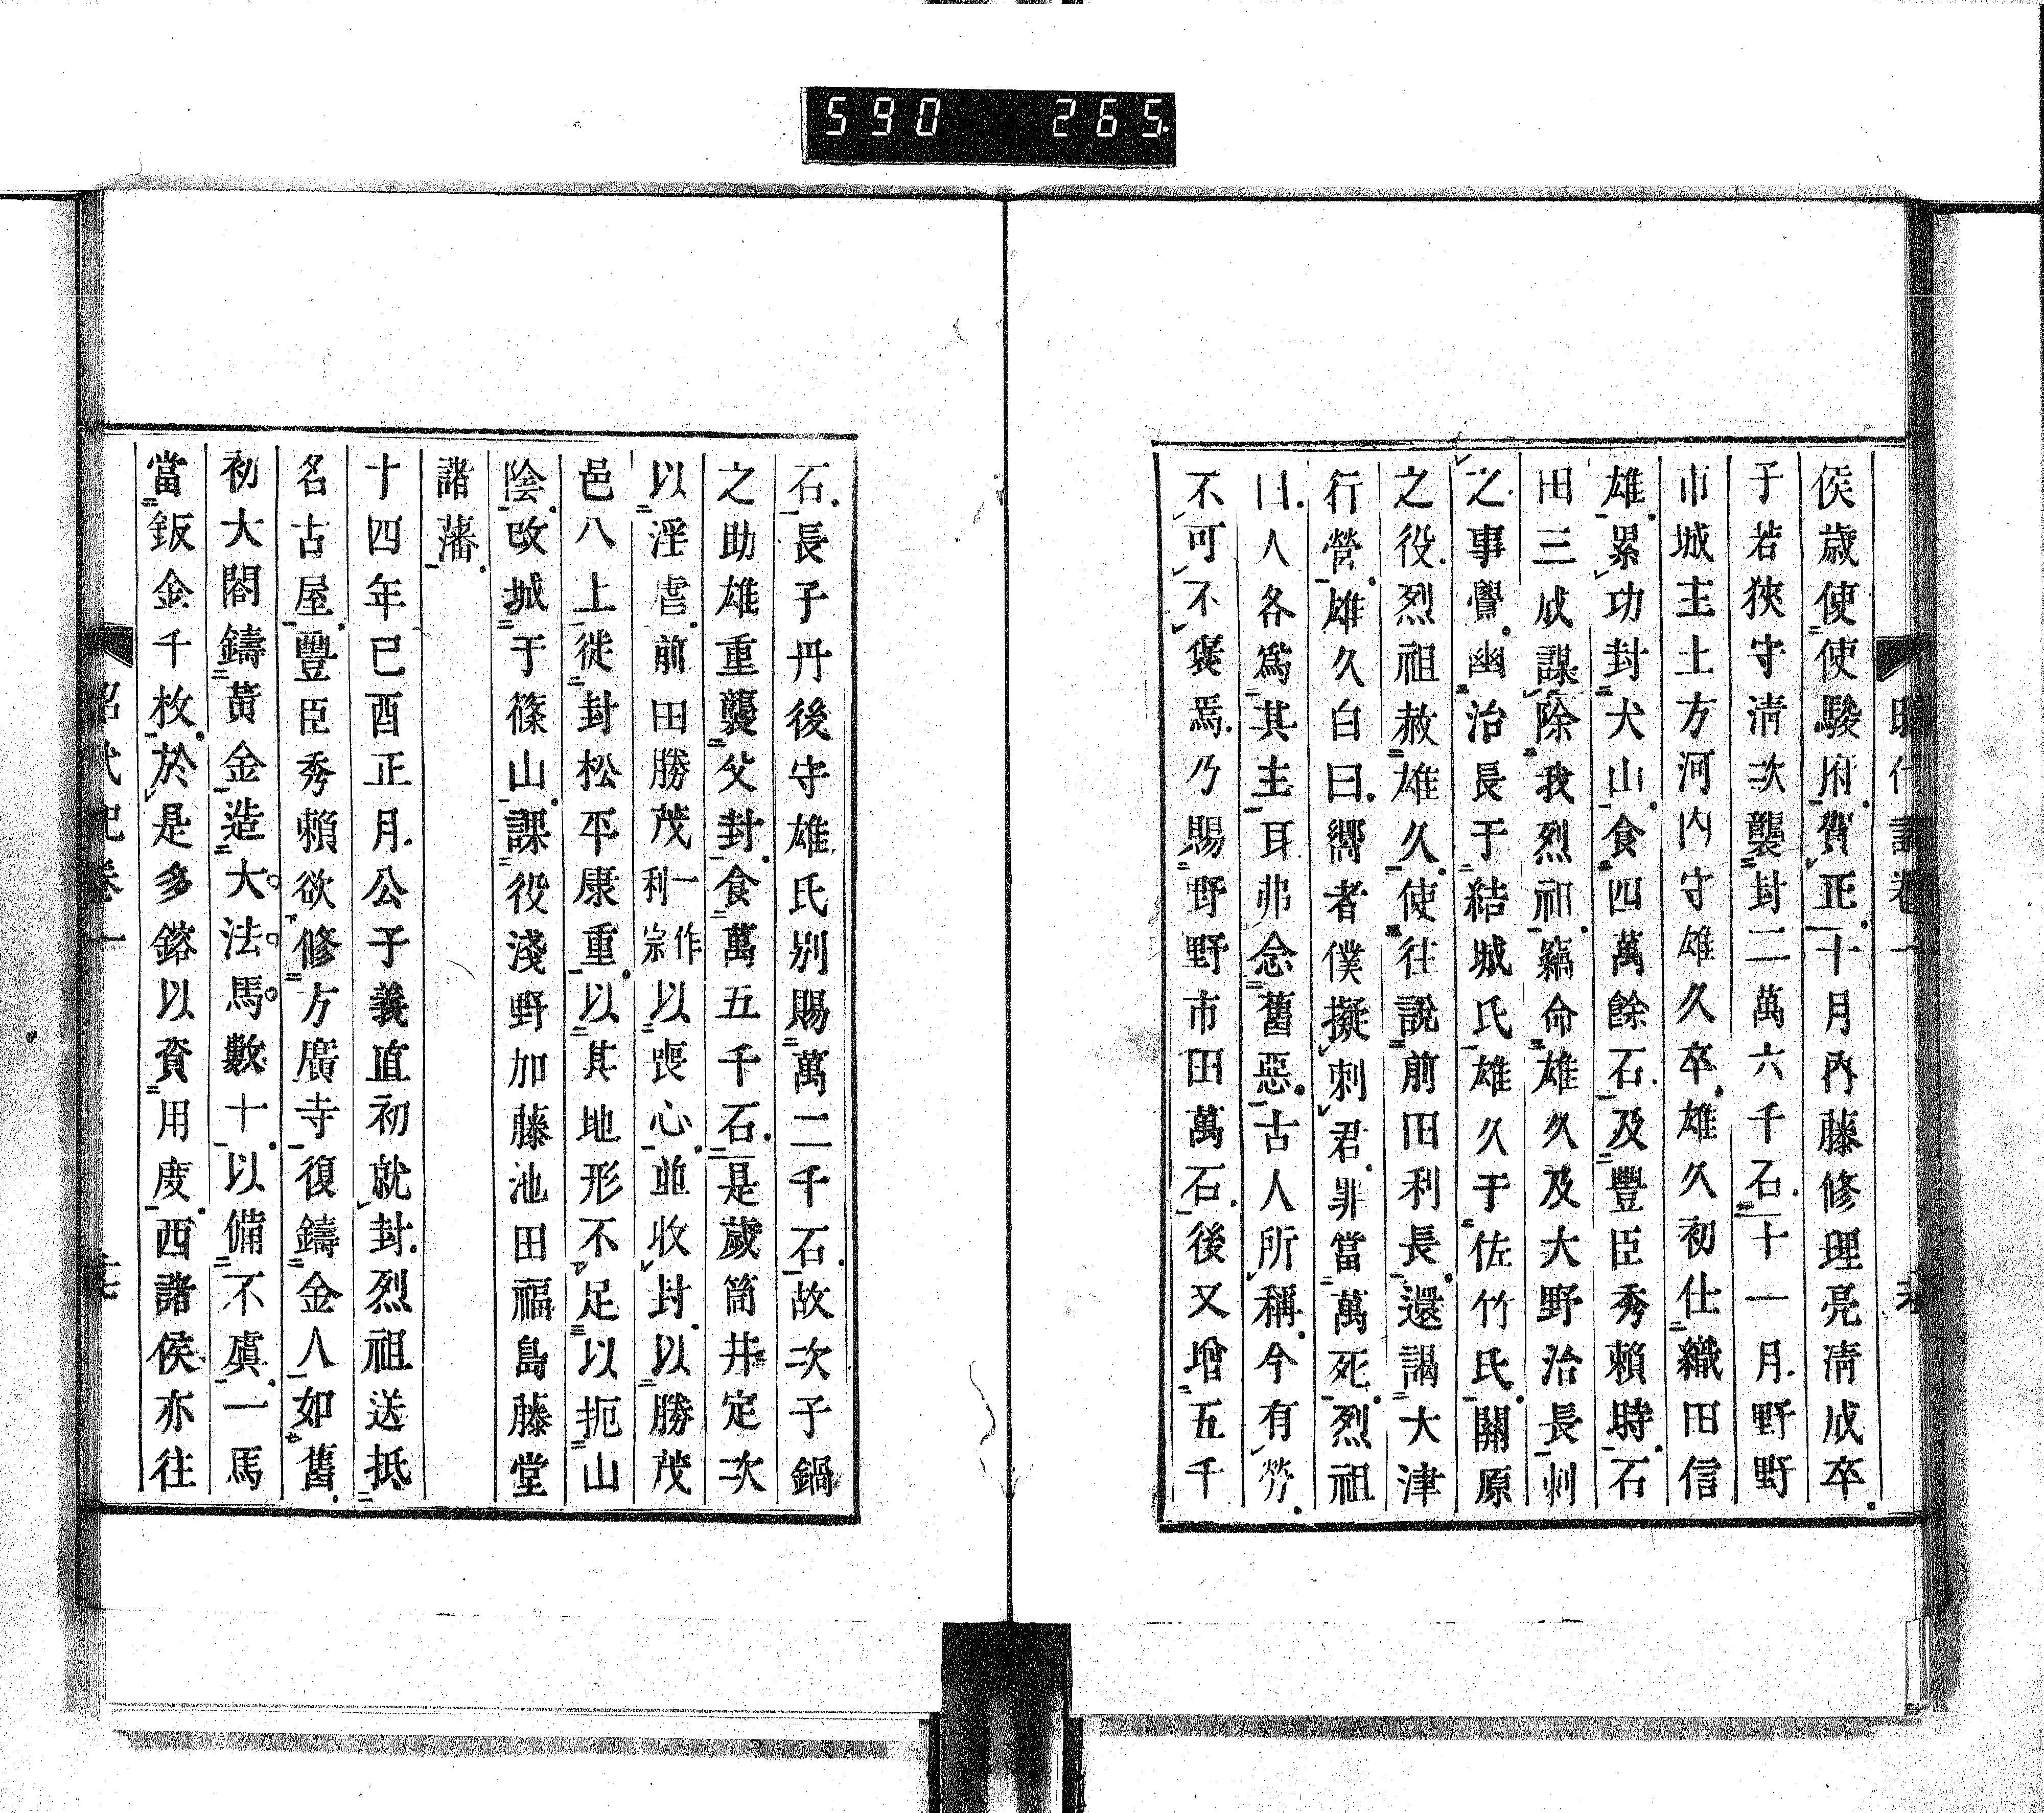 590 265
侯歲使使駿府賀正十月內藤修理亮淸成卒
子若狹守淸次襲封二萬六千石十一月野野
市城主土方河內守雄久卒雄久初仕織田信
雄累功封犬山食四萬餘石及豐臣秀賴時石
田三成謀除我烈祖竊命雄久及大野治長刺
之事覺幽治長于結城氏雄久于佐竹氏關原
之役烈祖赦雄久使往說前田利長還謁大津
行營雄久白曰嚮者僕擬刺君罪當萬死烈祖
曰人各爲其主耳弗念舊惡古人所稱今有勞
不可不襃焉乃賜野野市田萬石後又增五千
石長子丹後守雄氏別賜萬二千石故次子鍋
之助雄重襲父封食萬五千石是歲筒井定次
以淫虐前田勝茂一作利宗以喪心並收封以勝茂
邑八上徙封松平康重以其地形不足以扼山
陰改城于篠山課役淺野加藤池田福島藤堂
諸藩
十四年己酉正月公子義直初就封烈祖送抵
名古屋豐臣秀賴欲修方廣寺復鑄金人如舊
初大閤鑄黃金造大法馬數十以備不虞一馬
當鈑金千枚於是多鎔以資用度西諸侯亦往
昭代記卷一